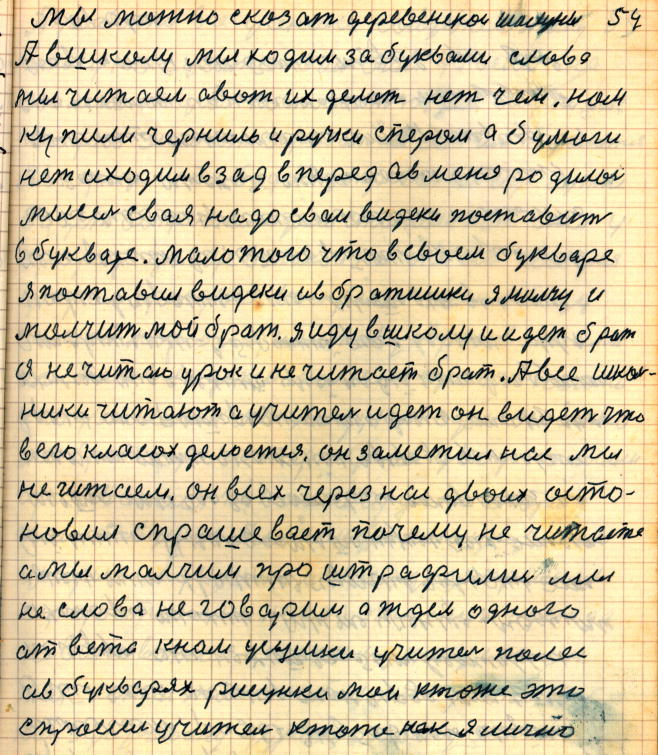 мы можно сказат деревенскои шалуны 54
А вшколу мы ходим за буквами слова
мы читаем авот их делат нет чем. нам
купили черниль и ручки спером а бумаги
нет иходим взад вперед ав меня родилас
мысел свая надо свои видеки поставит
в букваре. мало того что в своем букваре
я поставил видеки ив братишки я молчу и
молчит мой брат. я иду в школу и идет брат
я не читаю урок и не читает брат. А все школ-
ники читают а учител идет он видет что
в его класах делаетея. он заметил нас мы
не читаем. он всех через нас двоих оста-
новил спрашевает почему не читаете
а мы малчим проштрафилис мы
не слова не говарим а ждем одного
атвета кнам усумки учител полес
ав букварях рисунки маи ктоже это
спросил учител ктоже как я лично